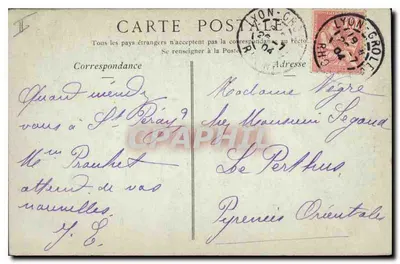 CARTE POSTALE
Tous les pays étrangers n'acceptent pas la correspondance au recto
Se renseigner à la Poste
Correspondance
Adresse
LYON-GROLÉE
04
RH
CPAPHIL
Quand
vous à St Péray?
Mme Prouhet
attend de vos
nouvelles.
J. E.
Madame Nègre
chez Monsieur Segond
Le Perthus
Pyrénées Orientales